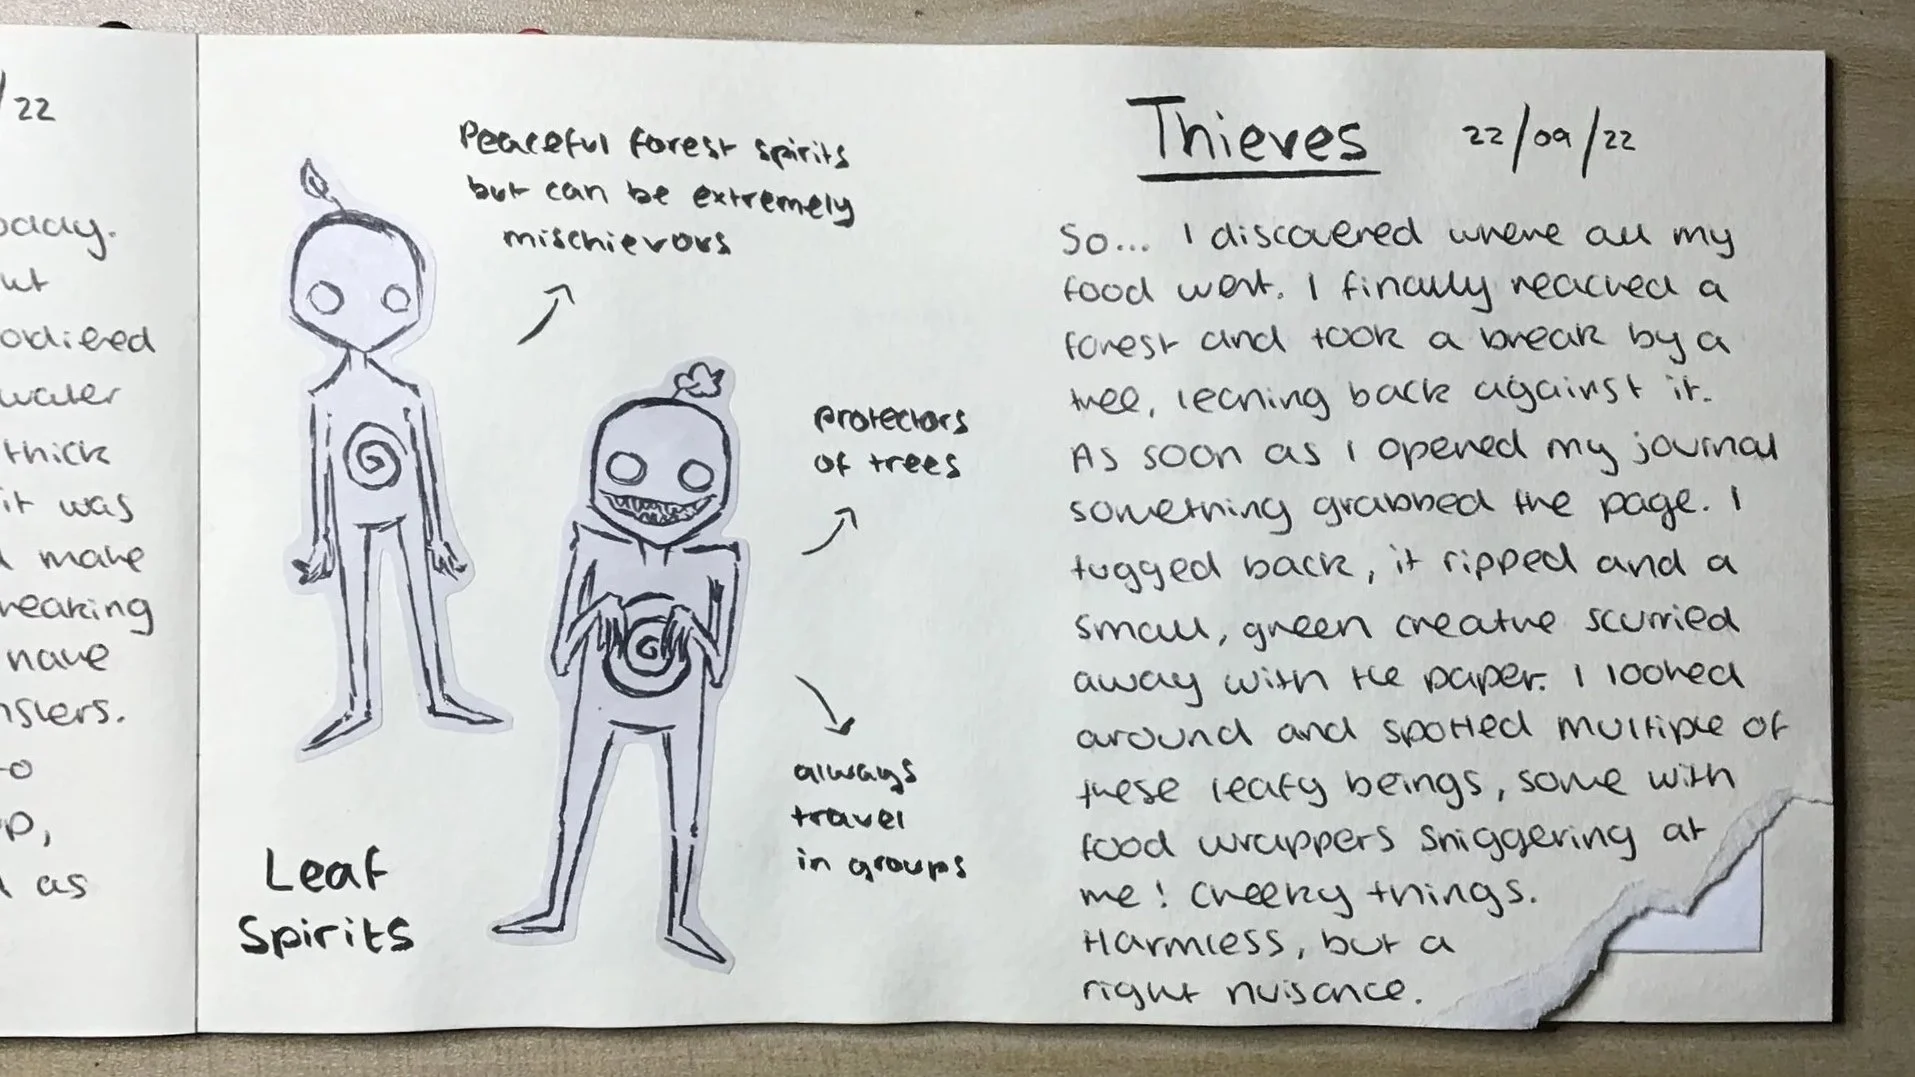 /22
oday.
ut
odiered
water
thick
it was
make
reaking
have
nsters.
to
p,
as
Peaceful forest spirits
but can be extremely
mischievous
protectors
of trees
always
travel
in groups
Leaf
Spirits
Thieves 22/09/22
So... I discovered where all my
food went. I finally reached a
forest and took a break by a
tree, leaning back against it.
As soon as I opened my journal
something grabbed the page. I
tugged back, it ripped and a
small, green creature scurried
away with the paper. I looked
around and spotted multiple of
these leafy beings, some with
food wrappers sniggering at
me! Cheeky things.
Harmless, but a
right nuisance.